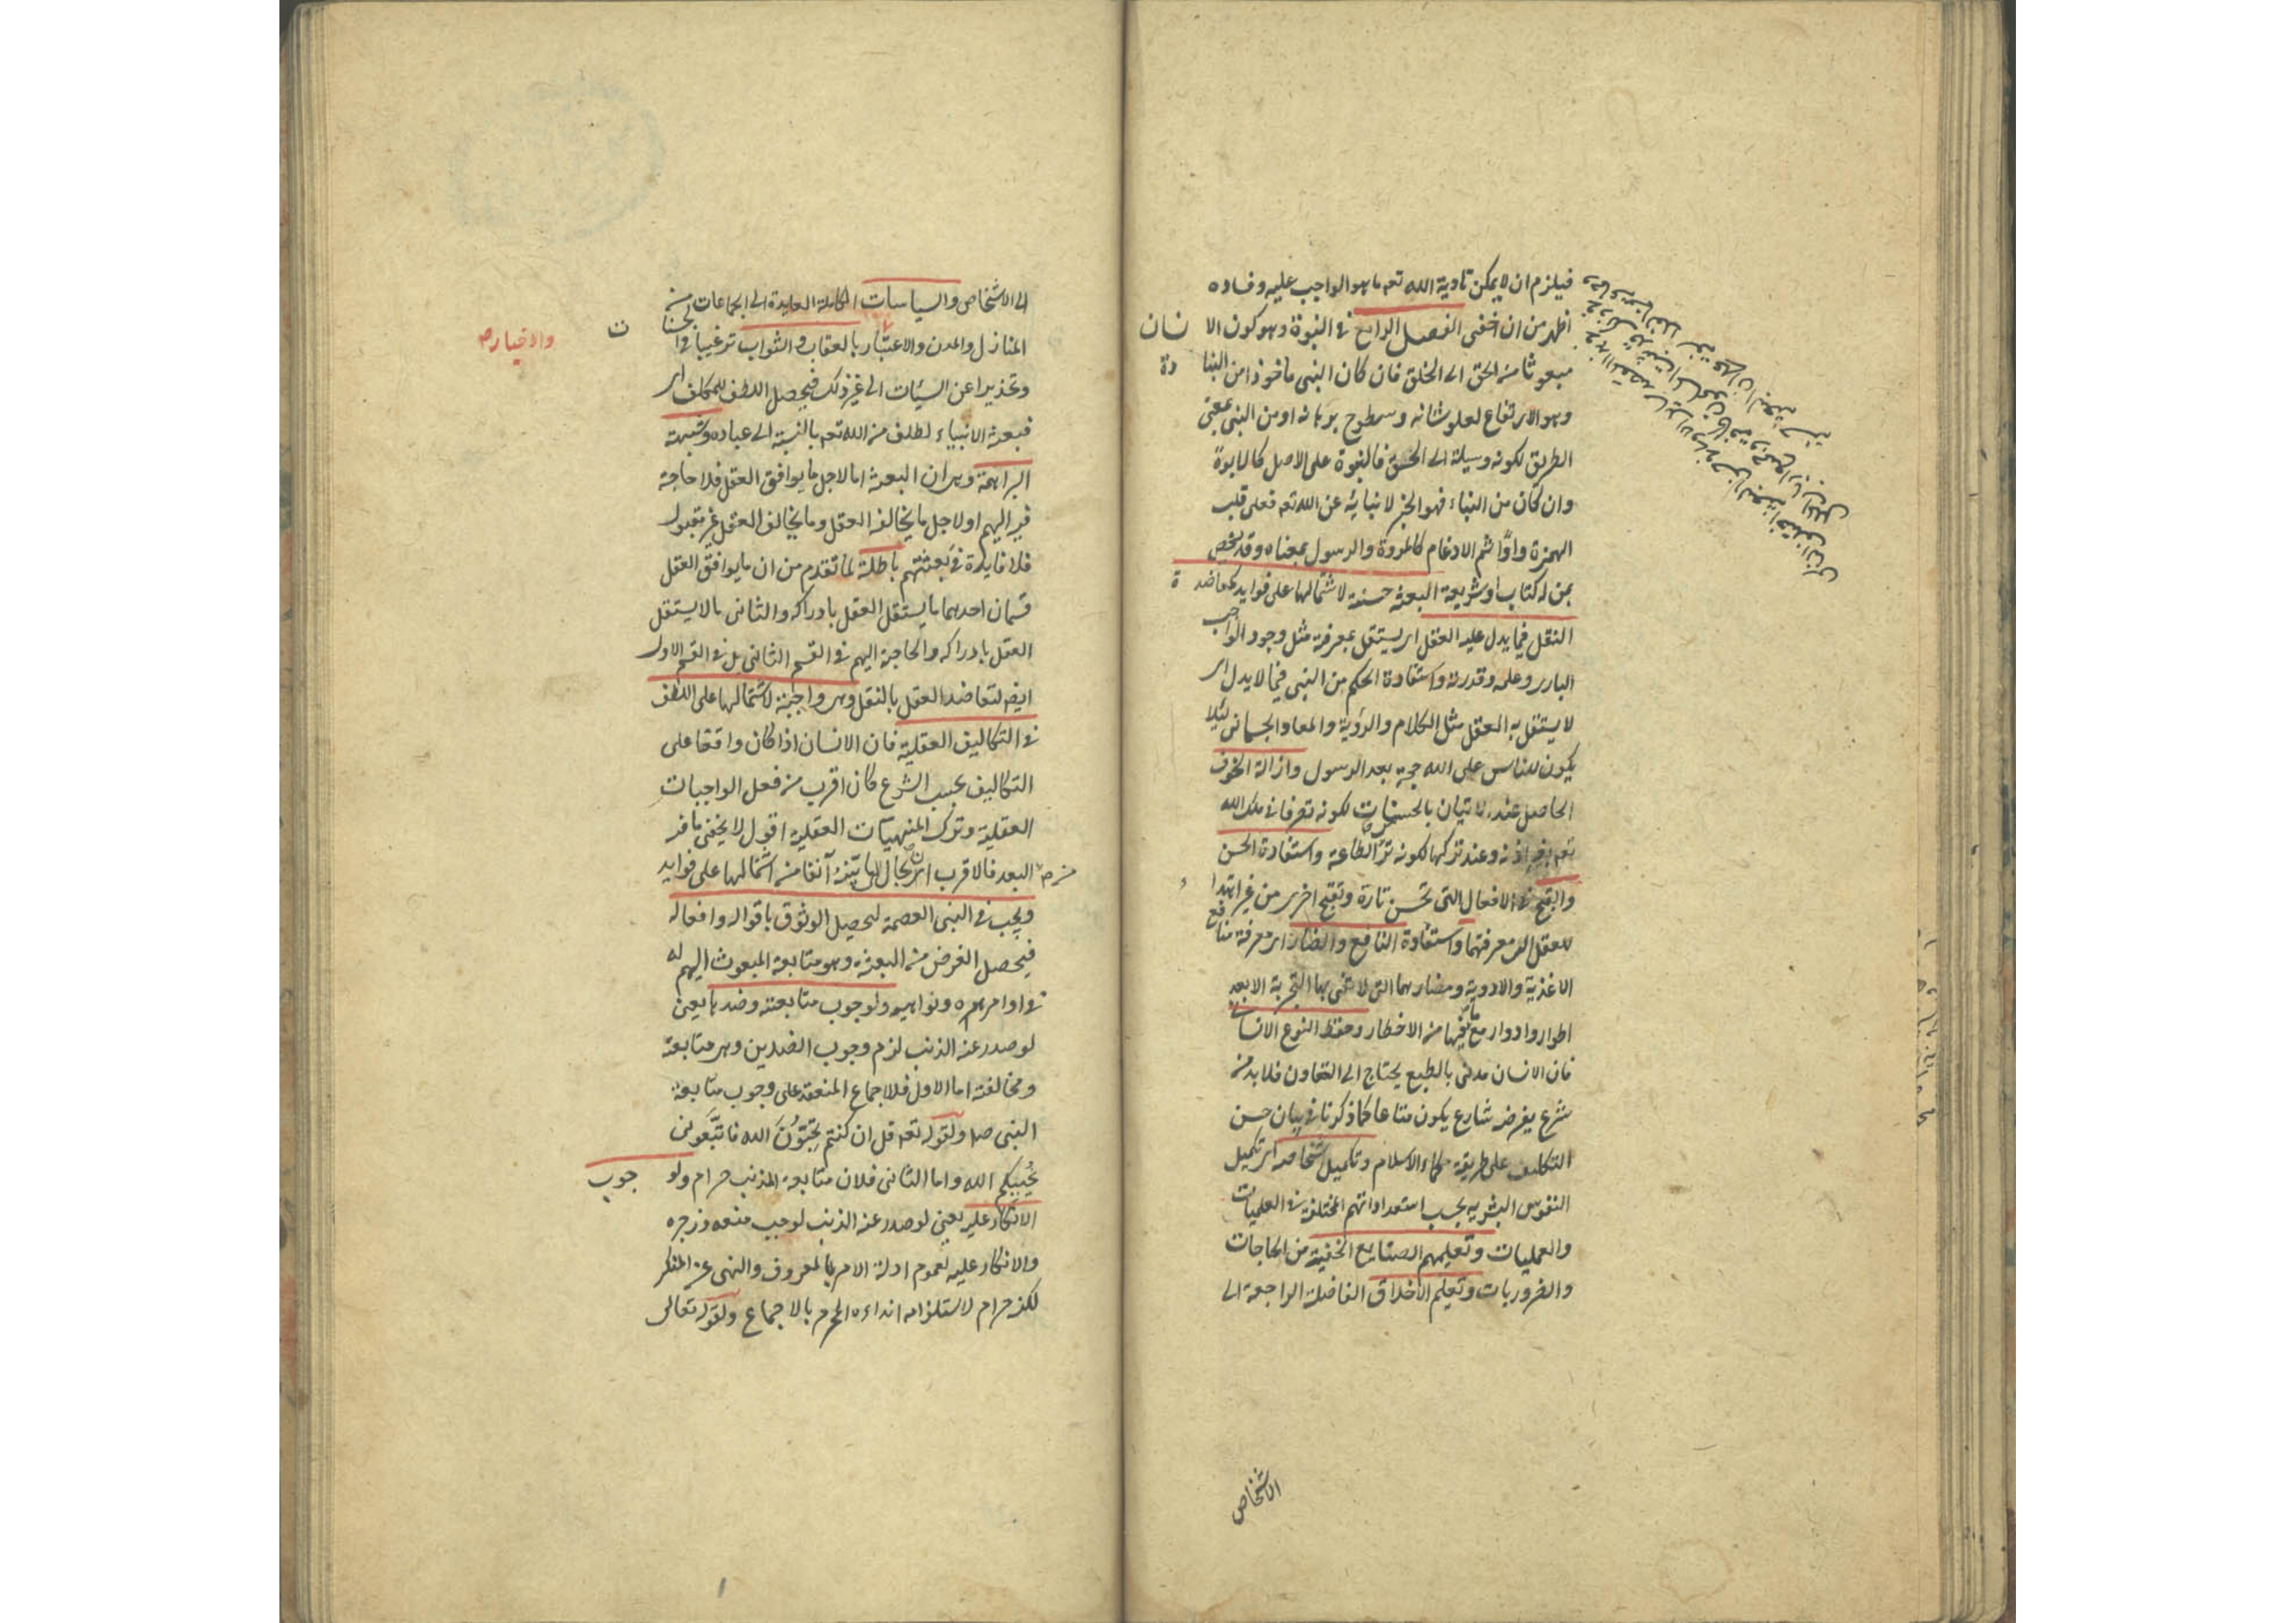 فيلزم ان لا يمكن تادية الله تعه ما هو الواجب عليه وفساده
اظهر من ان اخفى الفصل الرابع فى النبوة وهو كون الانسان
مبعوثا من الحق الى الخلق فان كان النبى ماخوذا من النباوة
وهو الارتفاع لعلو شانه وسطوح برهانه او من النبى بمعنى
الطريق لكونه وسيلة الى الحق فالنبوة على الاصل كالابوة
وان كان من النباء فهو الخبر لانبائه عن الله تعه فعلى قلب
الهمزة واوًا ثم الادغام كالمروة والرسول بمعناه وقد يخص
بمن له كتاب او شريعة البعثة حسنة لاشتمالها على فوايد كمعاضدة
النقل فيما يدل عليه العقل اى يستقل بمعرفته مثل وجود الواجب
البارى وعلمه وقدرته واستفادة الحكم من النبى فيما لا يدل اى
لا يستقل به العقل مثل الكلام والرؤية والمعاد الجسمانى لئلا
يكون للناس على الله حجة بعد الرسول وازالة الخوف
الحاصل عند الاتيان بالحسنات لكونه تصرفا فى ملك الله
تعه بغير اذنه وعند تركها لكونه ترك الطاعة واستفادة الحسن
والقبح فى الافعال التى تحسن تارة وتقبح اخرى من غير اهتداء
للعقل الى معرفتهما واستفادة النافع والضار اى معرفة منافع
الاغذية والادوية ومضارهما التى لا تفى بها التجربة الا بعد
اطوار وادوار مع ما فيها من الاخطار وحفظ النوع الانسانى
فان الانسان مدنى بالطبع يحتاج الى التعاون فلا بد من
شرع يفرضه شارع يكون متاعا كما ذكرنا فى بيان حسن
التكليف على طريقة حكماء الاسلام وتكميل اشخاصه اى تكميل
النفوس البشرية بحسب استعداداتهم المختلفة فى العلميات
والعمليات وتعليمهم الصنايع الخفية من الحاجات
والضروريات وتعليم الاخلاق الفاضلة الراجعة الى
الاشخاص
الى الاشخاص والسياسات الكاملة العايدة الى الجماعات من
المنازل والمدن والاعتبار بالعقاب والثواب ترغيبا فى الحسنات
والاخبار صح
وتحذيرا عن السيئات الى غير ذلك فيحصل اللطف للمكلف اى
فبعثة الانبياء لطف من الله تعه بالنسبة الى عباده وشبهة
البراهمة وهى ان البعثة اما لاجل ما يوافق العقل فلا حاجة
فيه اليهم او لاجل ما يخالفه العقل وما يخالف العقل غير مقبول
فلا فايدة فى بعثتهم باطلة لما تقدم من ان ما يوافق العقل
قسمان احدهما ما يستقل العقل بادراكه والثانى ما لا يستقل
العقل بادراكه والحاجة اليهم فى القسم الثانى بل فى القسم الاول
ايضا لتعاضد العقل بالنقل وهى واجبة لاشتمالها على اللطف
فى التكاليف العقلية فان الانسان اذا كان واقفا على
التكاليف بحسب الشرع كان اقرب من فعل الواجبات
العقلية وترك المنهيات العقلية اقول لا يخفى ما فيه
من البعد فالاقرب ان يحال الى ما بينه آنفا من اشتمالها على فوايد
ويجب فى النبى العصمة ليحصل الوثوق باقواله وافعاله
فيحصل الغرض من البعثة وهو متابعة المبعوث اليهم له
فى اوامره ونواهيه ولوجوب متابعته وضدها يعنى
لو صدر عنه الذنب لزم وجوب الضدين وهى متابعته
ومخالفته اما الاول فلاجماع المنعقد على وجوب متابعة
النبى صلم ولقوله تعه قل ان كنتم تحبون الله فاتبعونى
يحببكم الله واما الثانى فلان متابعة المذنب حرام ولوجوب
الانكار عليه يعنى لو صدر عنه الذنب لوجب منعه وزجره
والانكار عليه لعموم ادلة الامر بالمعروف والنهى عن المنكر
لكنه حرام لاستلزامه ايذاءه المحرم بالاجماع ولقوله تعالى